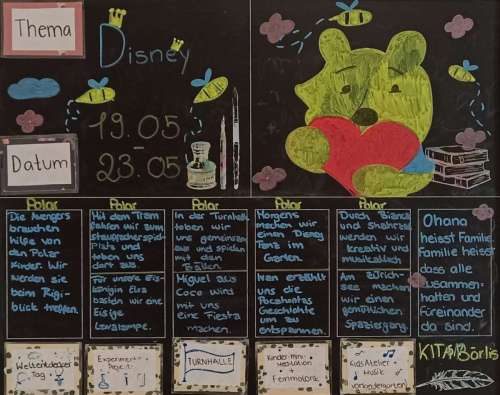 Thema
Disney
Datum
19.05
-
23.05
Polar
Polar
Polar
Polar
Polar
Die Avengers
brauchen
Hilfe von
den Polar
Kinder. Wir
werden sie
beim Rigi-
blick treffen.
Mit dem Tram
fahren wir zum
plats und
toben uns
dort aus.
In der Turnhalle
toben wir
uns gemeinsam
aus und spielen
mit den
Bällen.
Morgens
machen wir
einen Disney
Tanz im
Garten.
Durch Bianca
und
werden wir
kreativ und
musikalisch
Ohana
heisst Familie
Familie heisst
dass alle
zusammen-
halten und
füreinander
da sind.
Für unsere Eis-
königin Elsa
basteln wir eine
Eisige
Miguel aus
Coco wird
mit uns
eine Fiesta
machen.
Ivan erzählt
uns die
Pocahontas
Geschichte
um zu
entspannen.
Am Zürich-
see machen
wir einen
gemütlichen
Spaziergang.
Weltentdecker
Tag
Experiment
+
Projekt
TURNHALLE
Kinder-
+
Kids Atelier +
Musik
KITA Börlis